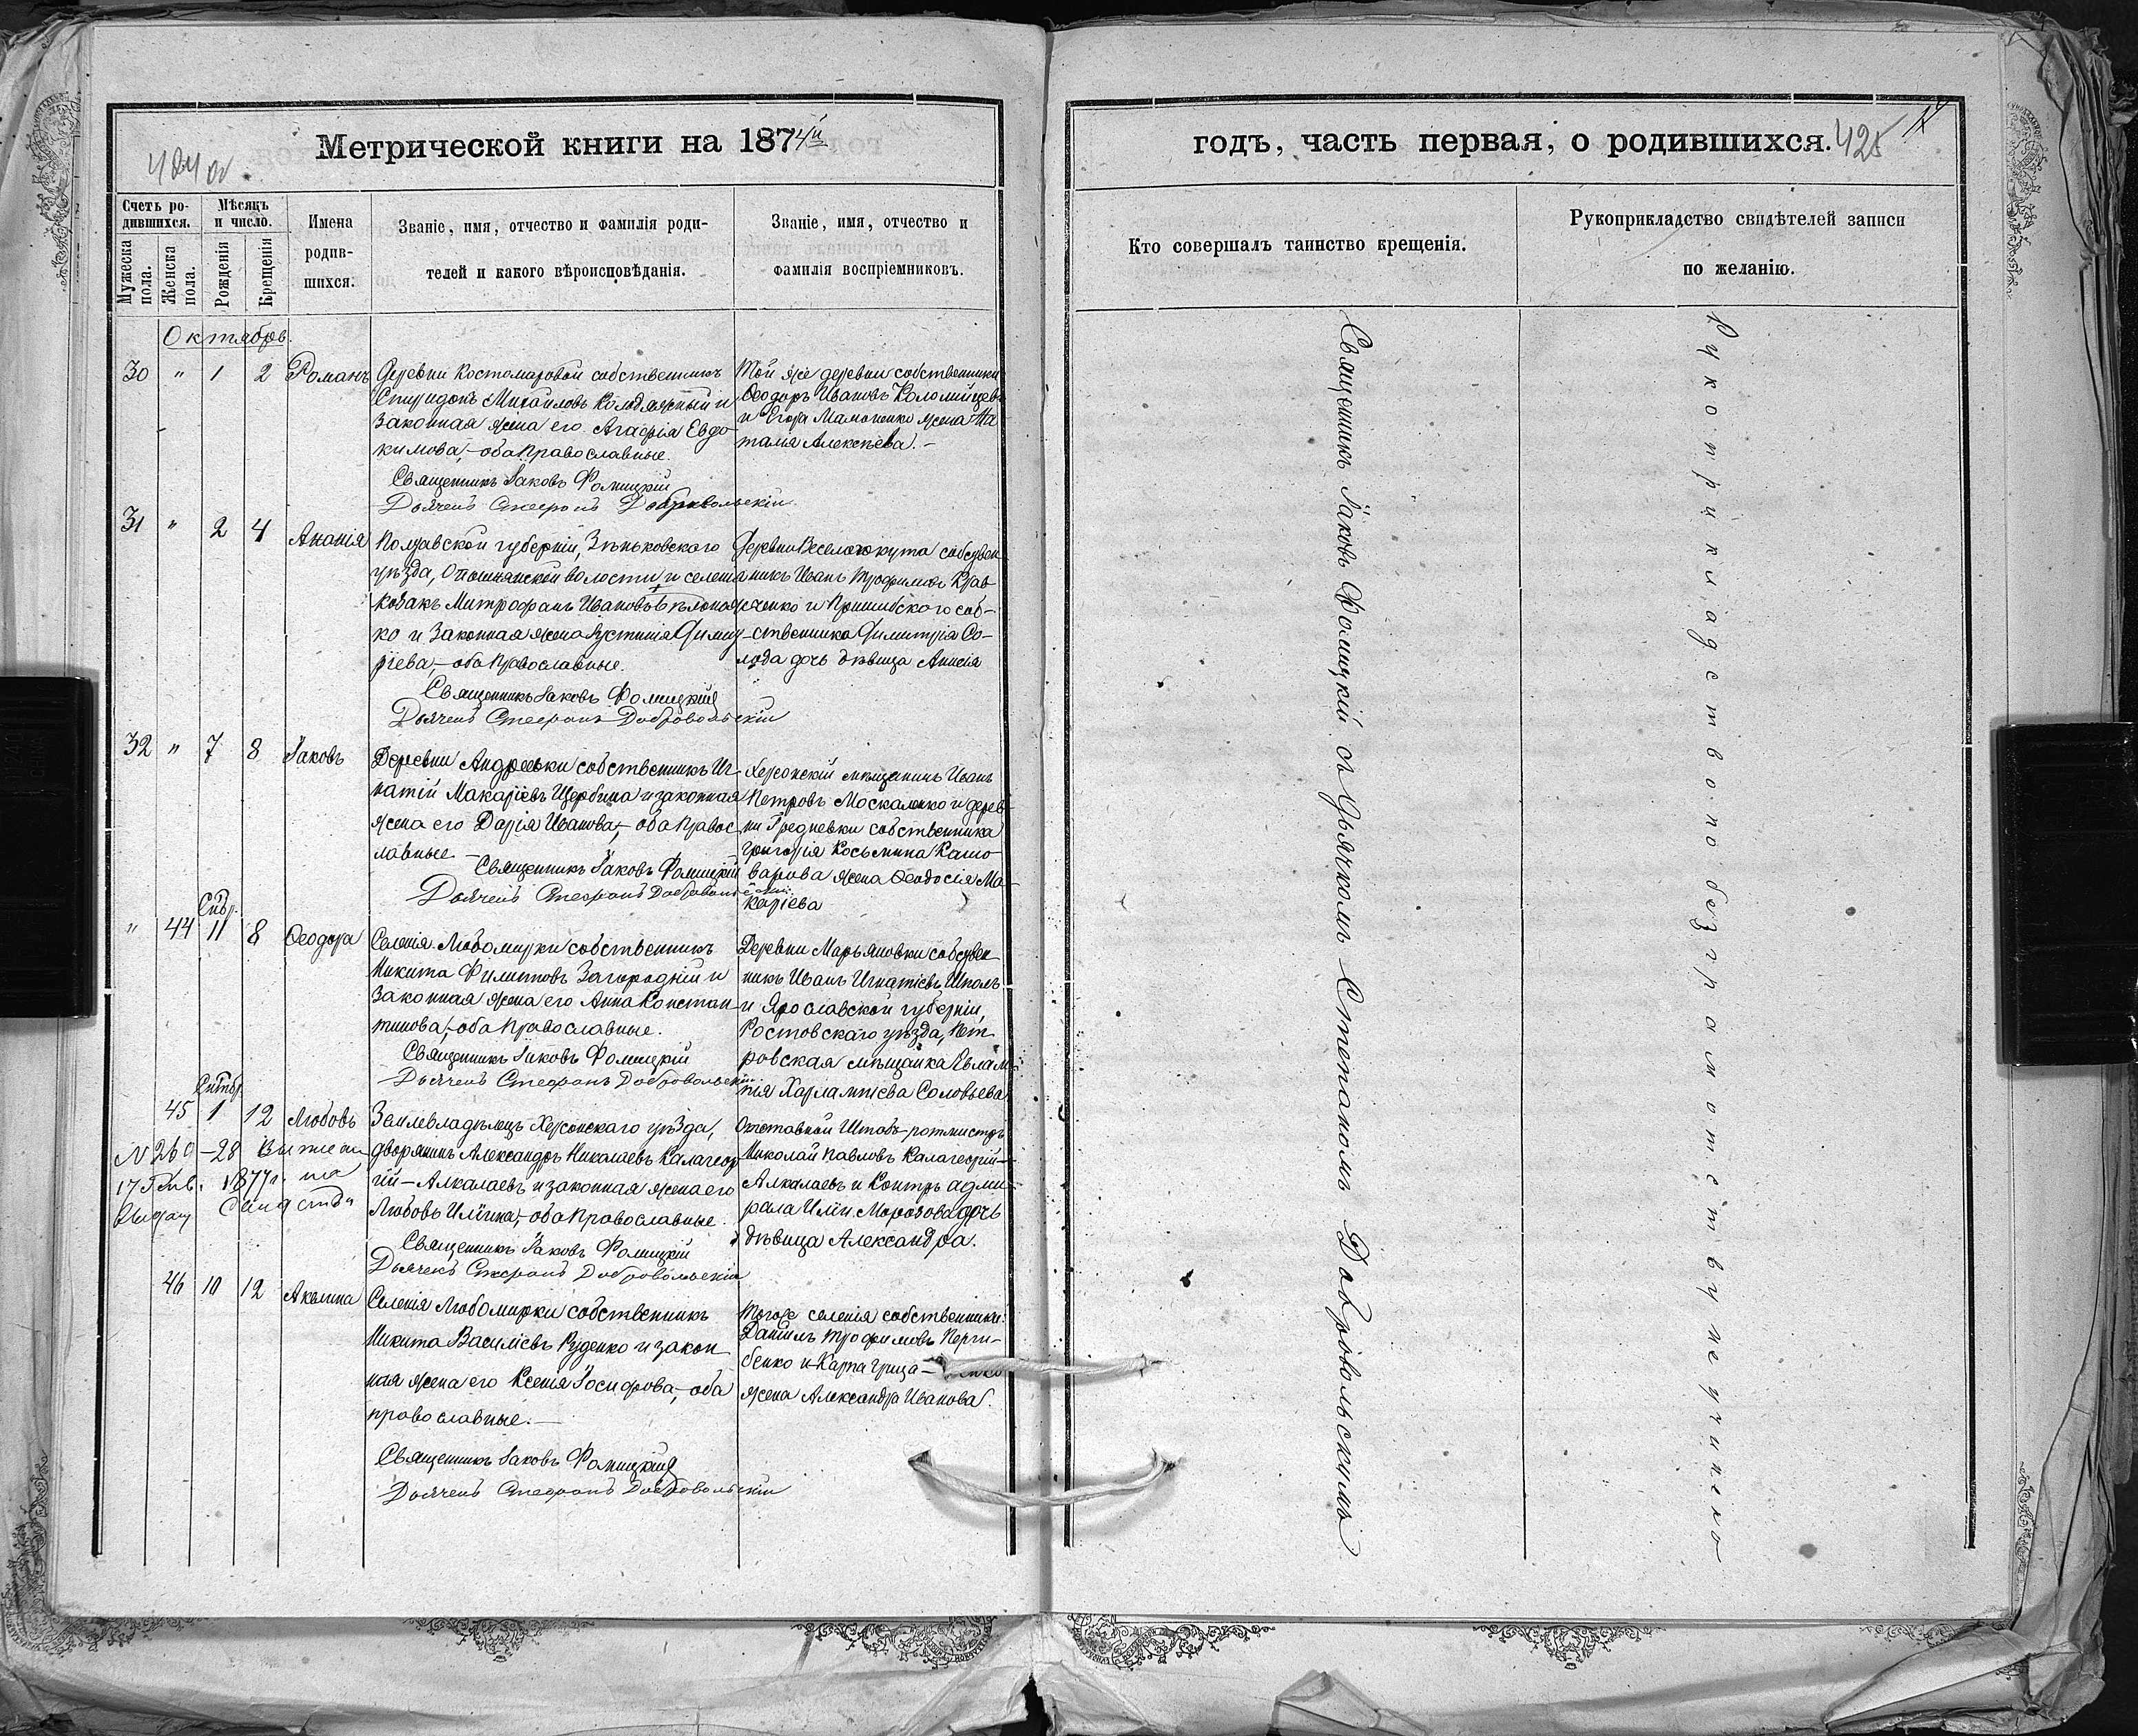 Метрической книги на 1874й
424 об.
Счетъ ро-
дившихся.
Мѣсяцъ
и число.
Мужеска
пола.
Женска
пола.
Рожденія
Крещенія
Имена
родив-
шихся.
Званіе, имя, отчество и фамилія роди-
телей и какого вѣроисповѣданія.
Званіе, имя, отчество и
фамилія воспріемниковъ.
Октябрь.
30 " 1 2 Романъ
Деревни Костомаровой собственникъ
Спиридонъ Михаиловъ Колодяжный и
законная жена его Агафія Евдо-
кимова, – оба православные.
Священникъ Іаковъ Фомицкій
Дьячекъ Стефанъ Добровольскій
Той же деревни собственники
Ѳеодоръ Ивановъ Коломийцевъ
и Егора Мамоненко жена На-
талія Алексѣева. –
31 " 2 4 Ананія
Полтавской губерніи, Зѣньковского
уѣзда, Опошнянской волости и селенія
козакъ Митрофанъ Ивановъ
ко и законная жена Іустинія Дими-
ріева, – оба православные.
Священникъ Іаковъ Фомицкій
Дьячекъ Стефанъ Добровольскій
Деревни Веселогокута собствен-
никъ Иванъ Трофимовъ Крав-
ченко и Пришибского соб-
ственника Димитрія Со-
лода дочь дѣвица Анисія
32 " 7 8 Іаковъ
Деревни Андреевки собственникъ Иг-
натій Макаріевъ Щербина и законная
жена его Дарія Иванова, – оба правос-
лавные. –
Священникъ Іаковъ Фомицкій
Дьячекъ Стефанъ Добровольскій
Херсонскій мѣщанинъ Иванъ
Петровъ Москаленко и дерев-
ни Гредневки собственника
Григорія Косьмина Кашо-
варова жена Ѳеодосія Ма-
каріева
Снбр.
" 44 11 8 Ѳеодора
Селенія Любомирки собственникъ
Никита Филиповъ Загородній и
законная жена его Анна Констан-
тинова, – оба православные.
Священникъ Іаковъ Фомицкій
Дьячекъ Стефанъ Добровольскій
Деревни Марьяновки собствен-
никъ Иванъ Игнатіевъ Шполъ
и Ярославской губерніи,
Ростовскаго уѣзда, Пет-
ровская мѣщанка Евлам-
пія Харлампіева Соловьева
Снтбр.
45 1 12 Любовь
N 260 – 28
17 Янв. 1877 г.
Землевладѣлецъ Херсонскаго уѣзда,
дворянинъ Александръ Николаевъ Калагеор-
гій – Алкалаевъ и законная жена его
Любовь Ильина, – оба православные.
Священникъ Іаковъ Фомицкій
Дьячекъ Стефанъ Добровольскій
Отставной Штабъ-ротмистръ
Николай Павловъ Калагеоргій –
Алкалаевъ и Контръ адми-
рала Ильи Морозова дочь
дѣвица Александра.
46 10 12 Акелина
Селенія Любомирки собственникъ
Никита Василіевъ Руденко и закон-
ная жена его Ксенія Іосифова, – оба
православные. –
Священникъ Іаковъ Фомицкій
Дьячекъ Стефанъ Добровольскій
Тогоже селенія собственники:
Даниилъ Трофимовъ
жена Александра Иванова.
годъ, часть первая, о родившихся. 425
Кто совершалъ таинство крещенія.
Рукоприкладство свидѣтелей записи
по желанію.
Священникъ Іаковъ Фомицкій съ Дьячкомъ Степаномъ Добровольскимъ
Рукоприкладство по безграмотству неучинено